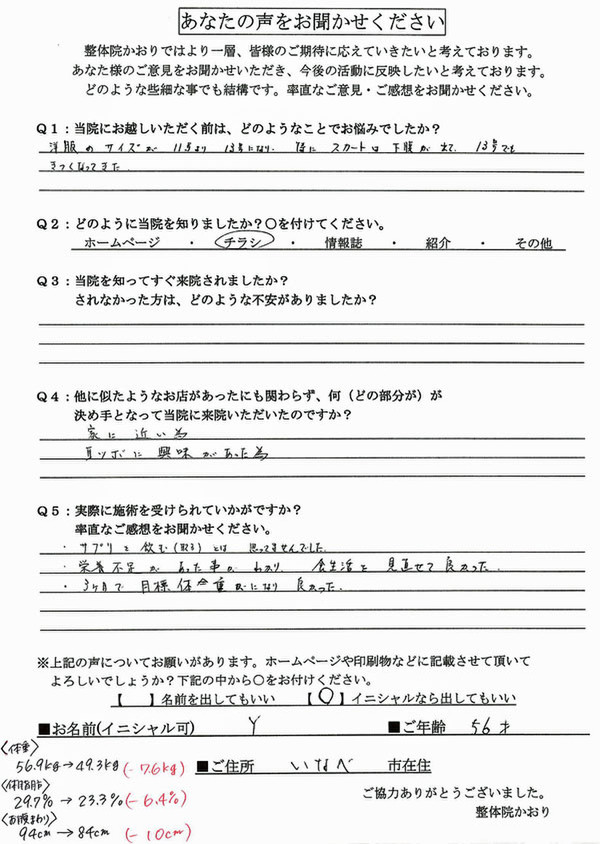 あなたの声をお聞かせください
整体院かおりではより一層、皆様のご期待に応えていきたいと考えております。
あなた様のご意見をお聞かせいただき、今後の活動に反映したいと考えております。
どのような些細な事でも結構です。率直なご意見・ご感想をお聞かせください。
Q1：当院にお越しいただく前は、どのようなことでお悩みでしたか？
洋服のサイズが 11号より 13号になり、特に スカートは 下腹が 出て、13号でも
きつくなってきた
Q2：どのように当院を知りましたか？〇を付けてください。
ホームページ ・ チラシ ・ 情報誌 ・ 紹介 ・ その他
Q3：当院を知ってすぐ来院されましたか？
されなかった方は、どのような不安がありましたか？
Q4：他に似たようなお店があったにも関わらず、何（どの部分が）が
決め手となって当院に来院いただいたのですか？
家に 近い為
耳ツボに 興味 があった為
Q5：実際に施術を受けられていかがですか？
率直なご感想をお聞かせください。
・サプリを 飲む(取る)とは 思ってませんでした
・栄養不足が あった事が わかり、食生活を 見直せて 良かった
・3ヶ月で 目標 体重になり 良かった
※上記の声についてお願いがあります。ホームページや印刷物などに記載させて頂いて
よろしいでしょうか？下記の中から〇をお付けください。
【 】名前を出してもいい 【〇】イニシャルなら出してもいい
■お名前(イニシャル可) Y ■ご年齢 56才
〈体重〉
56.9kg→49.3kg(-7.6kg) ■ご住所 いなべ 市在住
〈体脂肪〉
29.7% → 23.3%(-6.4%) ご協力ありがとうございました。
〈お腹まわり〉 整体院かおり
94cm → 84cm (-10cm)